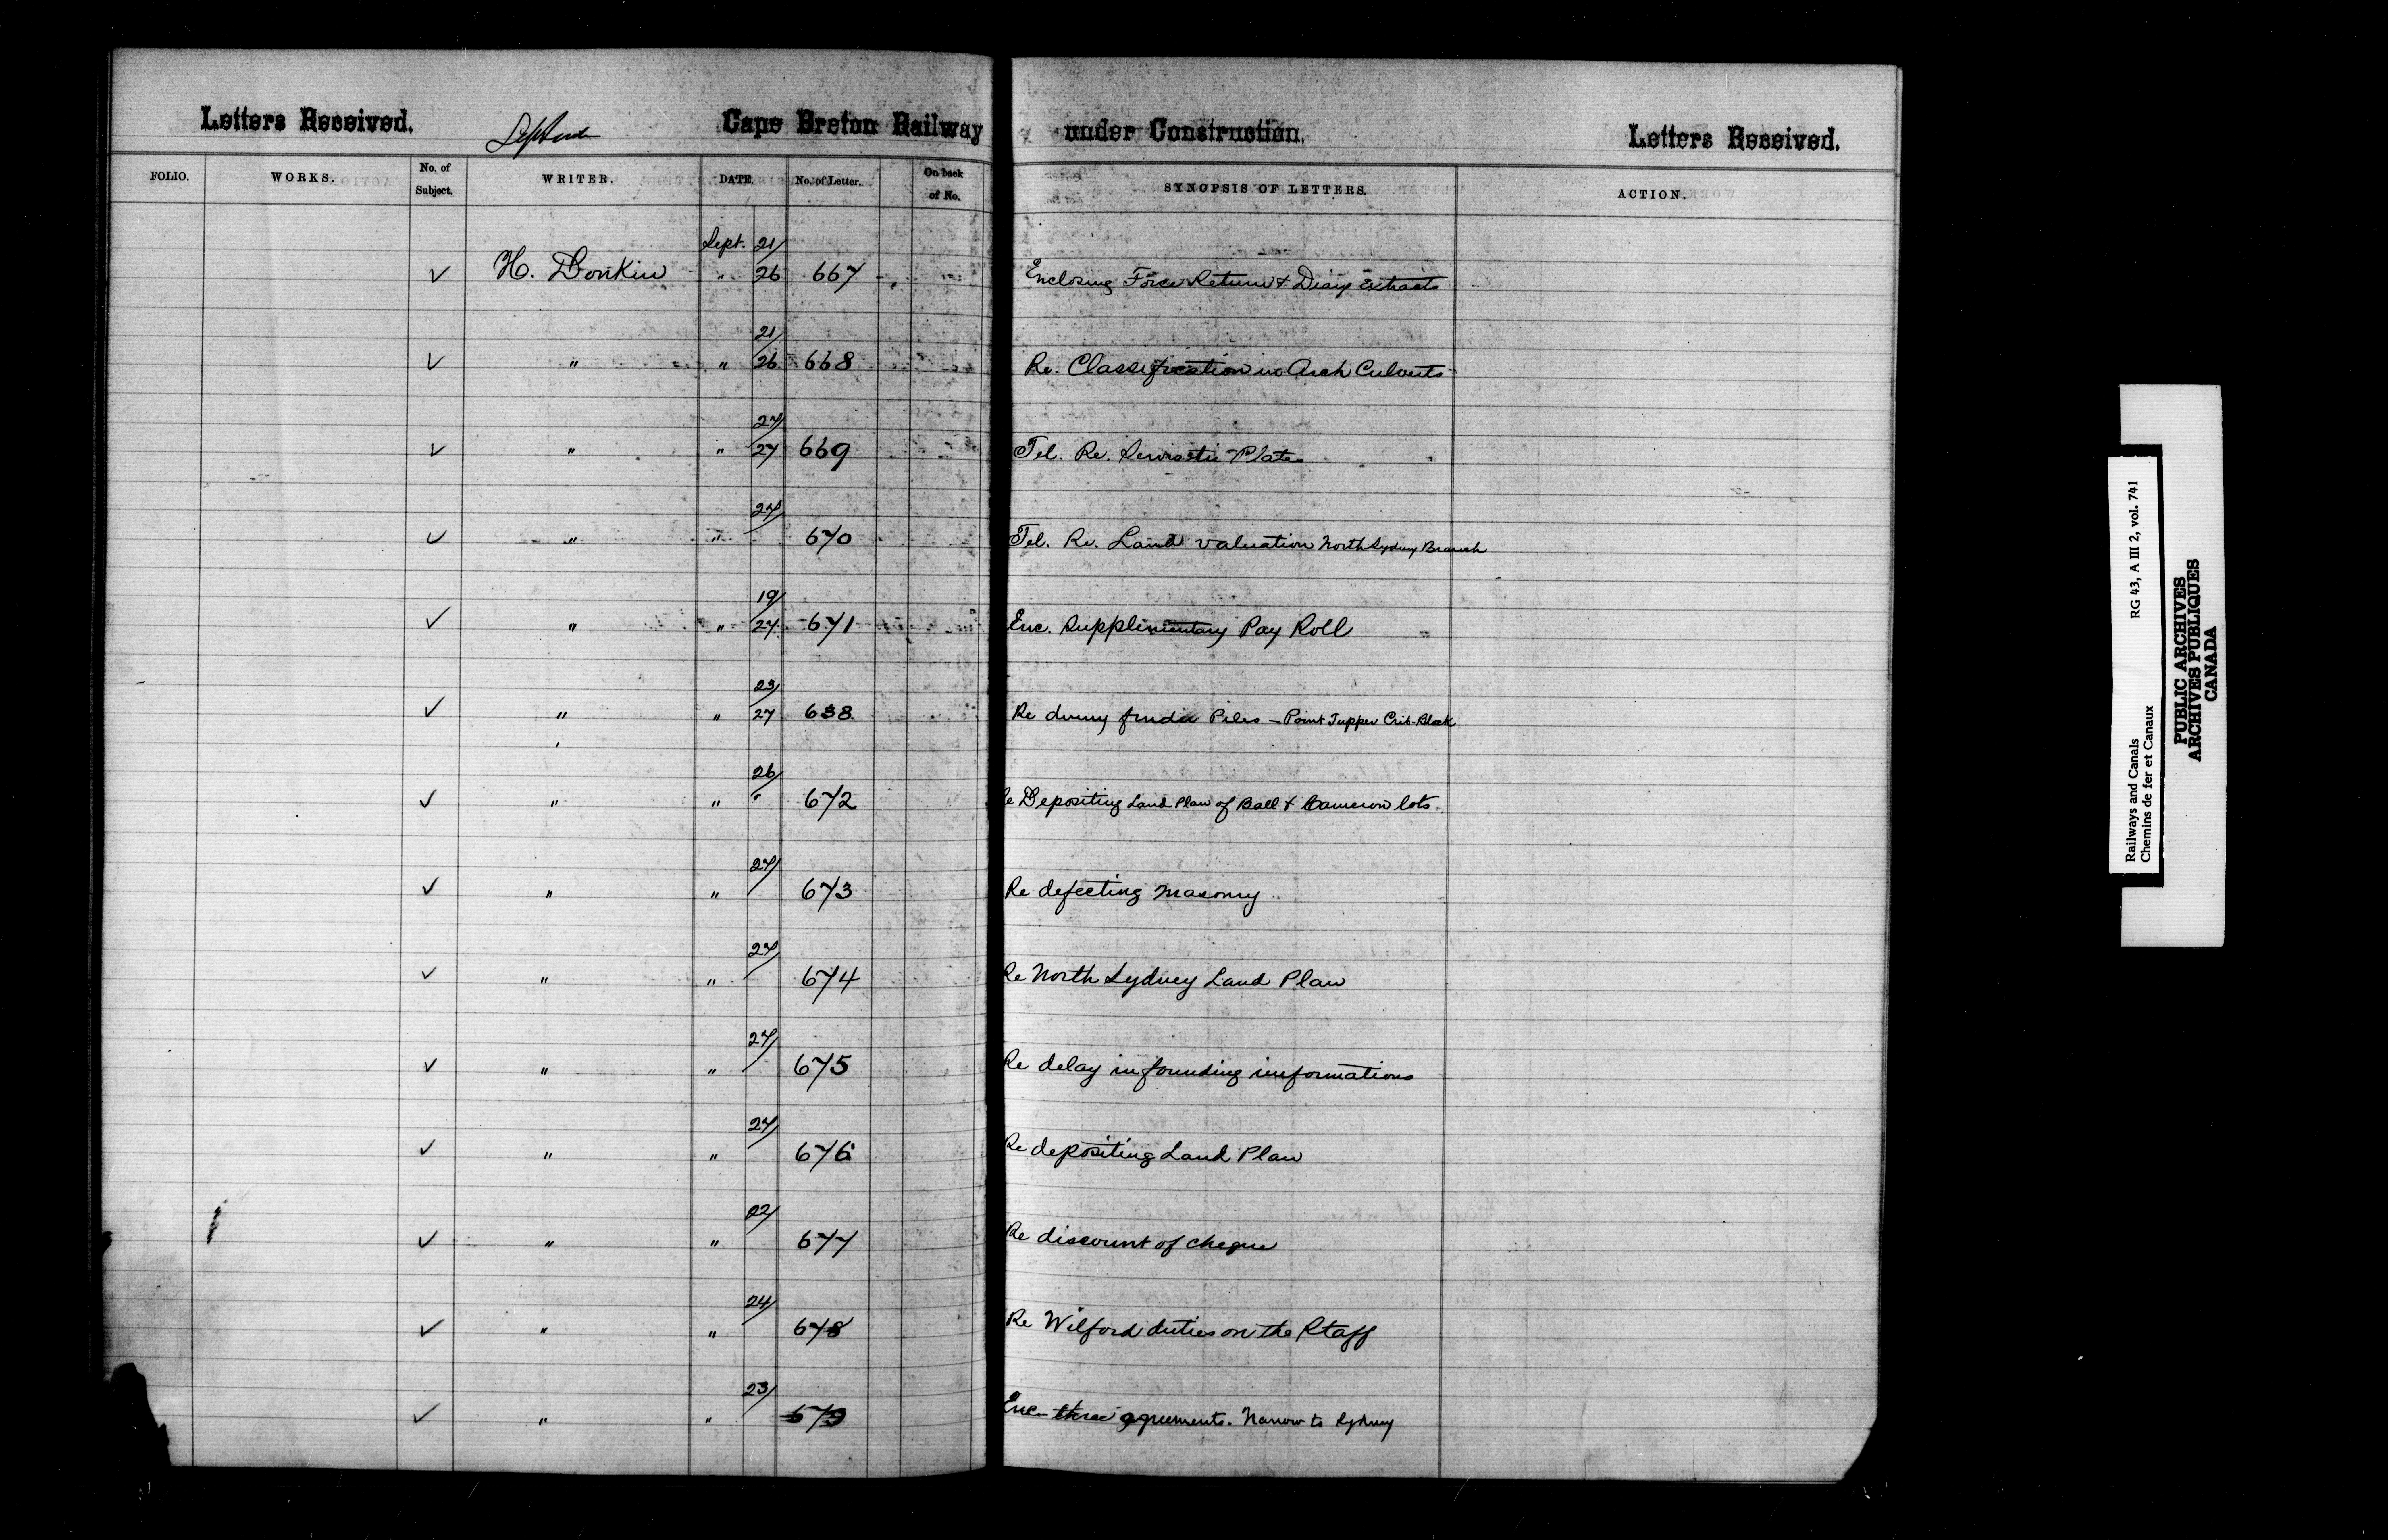 Letters Received. Septemb Cape Breton Railway under Construction. Letters Received.
FOLIO. WORKS. No. of Subject. WRITER. DATE. No. of Letter. On back of No. SYNOPSIS OF LETTERS. ACTION.
Sept. 21/
✓ H. Donkin " 26 667 Enclosing Force Return & Diary Extracts
21/
✓ " " 26 668 Re. Classification in Arch Culverts
27/
✓ " " 27 669 Tel. Re. Plate
27/
✓ " " 670 Tel. Re. Land valuation North Sydney Branch
19/
✓ " " 27 671 Enc. Supplimentary Pay Roll
23/
✓ " " 27 638 Re Piles – Point Tupper Crib-Block
26/
✓ " " " 672 Re Depositing Land Plan of Ball & Cameron lots
27/
✓ " " 673 Re defecting masonry
27/
✓ " " 674 Re North Sydney Land Plan
27/
✓ " " 675 Re delay in informations
27/
✓ " " 676 Re depositing Land Plan
22/
✓ " " 677 Re discount of cheque
24/
✓ " " 678 Re Wilford duties on the Staff
23/
✓ " " 679 Enc– three agreements. Narrow to Sydney
Railways and Canals RG 43, A III 2, vol. 741
Chemins de fer et Canaux
PUBLIC ARCHIVES
ARCHIVES PUBLIQUES
CANADA